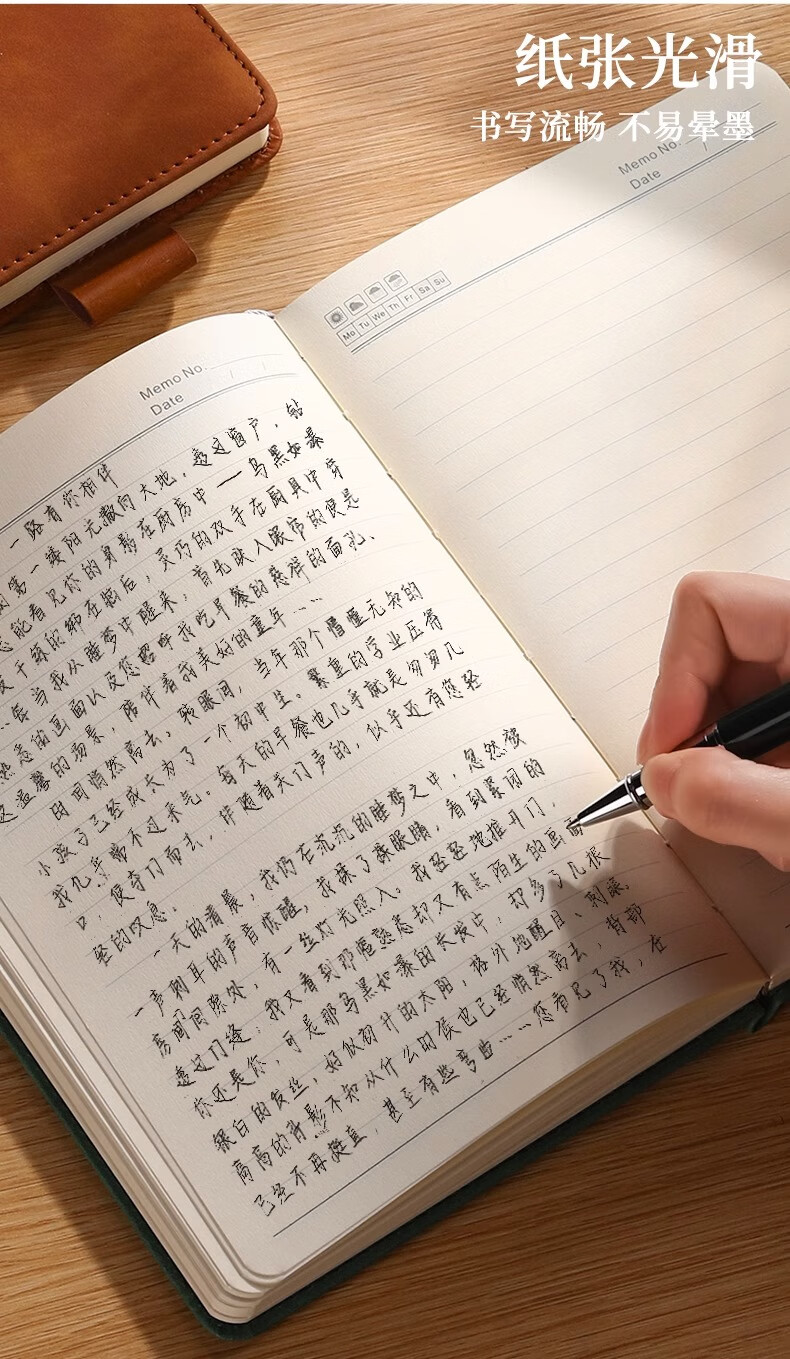 纸张光滑
书写流畅 不易晕墨
Memo No.
Date
Mo Tu We Th Fr Sa Su
Memo No.
Date
一路有你相伴
第一缕阳光撒向大地，透过窗户，钻
能看见你的身影在厨房中——乌黑如瀑
干练的绑在脑后，灵巧的双手在厨具中穿
每当我从睡梦中醒来，首先映入眼帘的便是
熟悉的画面以及您招呼我吃早餐的慈祥的面孔、
这温馨的场景，陪伴着我美好的童年……
时间悄然离去。转眼间，当年那个懵懂无知的
小孩子已经成长为了一个初中生。繁重的学业压得
我几乎喘不过来气。每天的早餐也几乎就是匆匆几
口，便夺门而去，伴随着关门声的，似乎还有您轻
轻的叹息。
一天的清晨，我仍在沉沉的睡梦之中，忽然被
一声刺耳的声音惊醒，我揉了揉眼睛，看到紧闭的
房间间隙处，有一丝灯光照入。我轻轻地推开门，
透过门缝：我又看到那幅熟悉却又有点陌生的画面
你还是你，可是那乌黑如瀑的长发中；却多了几根
银白的发丝，好似初升的太阳，格外地醒目、刺眼。
高高的背影不知从什么时候也已经悄然离去，背部
已经不再挺直，甚至有些弯曲……您看见了我，在